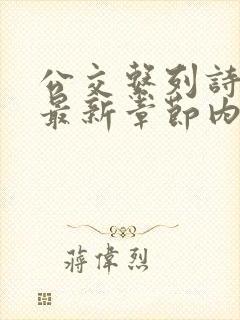 公交系列詩
最新章節內
蔣偉烈